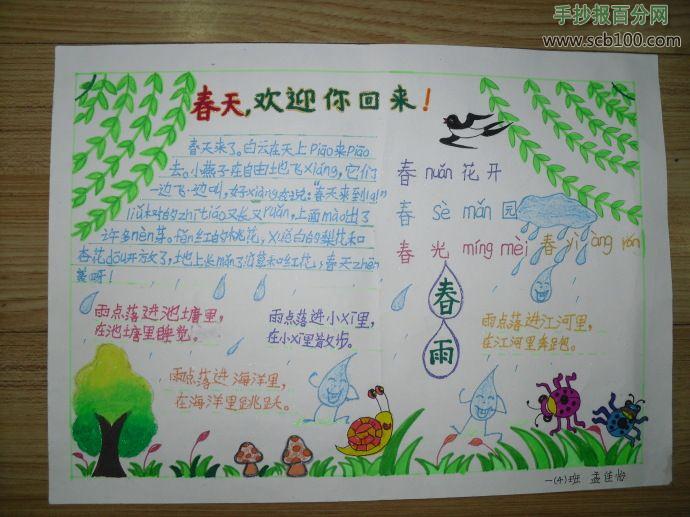 手抄报百分网
www.scb100.com
春天,欢迎你回来！
春天来了。白云在天上piāo来piāo
去。小燕子在自由地飞xiáng，它们
一边飞一边叫，好xiàng在说："春天来到la!"
liǔ树的zhī tiáo又长又ruǎn，上面mào出了
许多nèn芽。fěn红的桃花，xuě白的梨花和
杏花dōu开放了，地上长mǎn了沿草和红花，春天zhēn
美呀！
春nuǎn花开
春sè mǎn园
春光míng mèi
春yì àng rán
春雨
雨点落进池塘里，
在池塘里睡觉。
雨点落进小xī里，
在小xī里散步。
雨点落进江河里，
在江河里奔跑。
雨点落进海洋里，
在海洋里跳跃。
一(4)班 孟佳怡